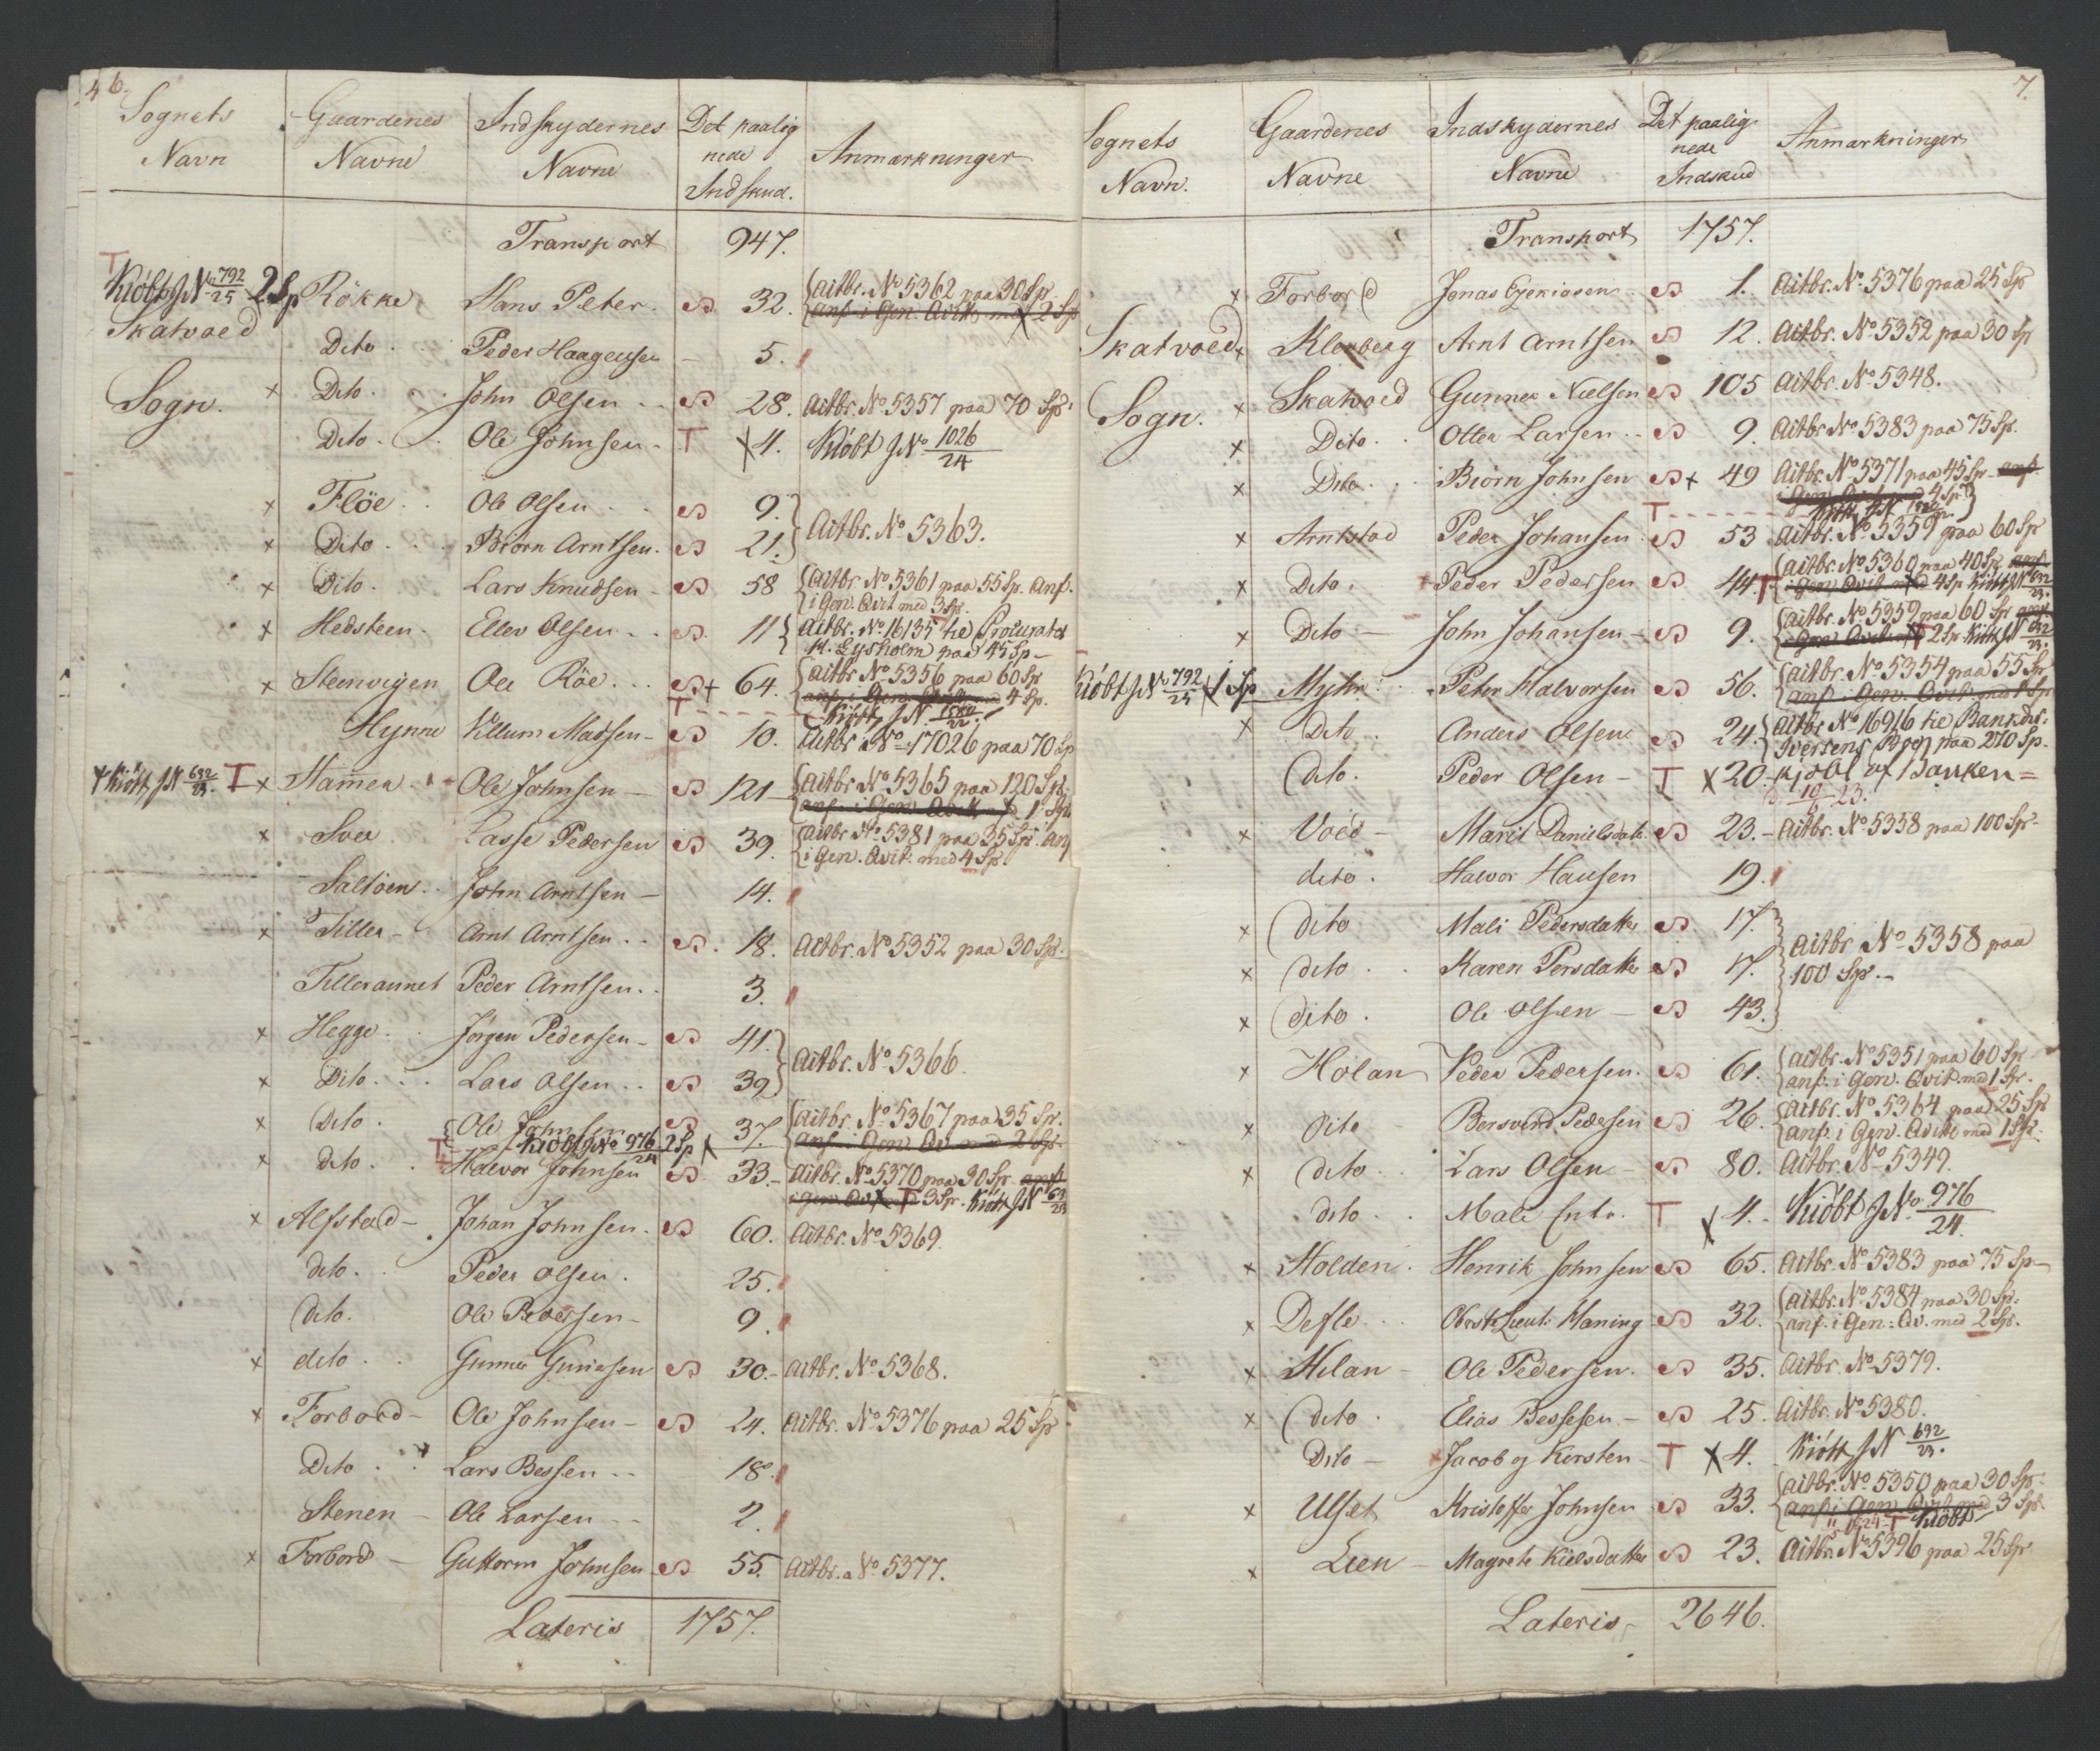 46.
Sognets Navn | Gaardenes Navne | Indskydernes Navne | Det paalignede Indskud. | Anmærkninger
Transport 947.
T Kiöbt JN 792/25 2 Sp Rökke Hans Peter. S 32. Actbr. No 5362 paa 30 Sp. anf. i Gen. Qvitt. med 2 Sp
Skatvoed Sogn.
Dito Peder Haagensen 5.
x Dito. John Olsen S 28. Actbr. No 5357 paa 70 Sp.
Dito. Ole Johnsen T X 4. Kiöbt JNo 1026/24
x Flöe Ole Olsen S 9.
x Dito Biörn Arntsen. S 21. Actbr. No 5363.
x Dito. Lars Knudsen S 58 Actbr. No 5361 paa 55 Sp. Anf. i Gen. Qvit med 3 Sp.
x Hedsteen. Ellev Olsen S 11 Actbr. No. 16135 til Procurator M. Lysholm paa 45 Sp
x Steenvigen Ole Röe S+ 64. Actbr No 5356 paa 60 Sp anf. i Gen. Qvitt med 4 Sp.
T Kiöbt JN 1580/22.
Hynne Villum Madsen S 10. Actbr. No 17026 paa 70 Sp
+ Kiöbt JN 692/23. T x Hammer Ole Johnsen S 121 Actbr. No 5365 paa 120 Sp. anf. i Gen. Qvitt 1 Sp
x Svee Lasse Pedersen S 39. Actbr No 5381 paa 35 Sp. Anf i Gen. Qvit. med 4 Sp
Saltöen John Arntsen 14.
x Tiller Arnt Arntsen S 18. Actbr. No 5352 paa 30 Sp.
Tilleraunet Peder Arntsen 3.
x Hegge Jörgen Pedersen S 41.
x Dito. Lars Olsen S 39 Actbr. No 5366.
x Dito. Ole Johnsen S 37. Actbr. No 5367 paa 35 Sp. anf. i Gen. Qv. med 2 Sp.
T Kiöbt JNo 976/24 2 Sp X
x dito. Halvor Johnsen S 33. Actbr. No 5370 paa 30 Sp. anf. i gen. Qv T 3 Sp. Kiöbt JN 692/23
x Alfstad Johan Johnsen. S 60. Actbr. No 5369.
dito. Peder Olsen. 25.
dito. Ole Pedersen 9.
x dito Gunner S 30. Actbr. No 5368.
x Forbord Ole Johnsen S 24. Actbr. No 5376 paa 25 Sp
Dito Lars Bessen 18.
Stenen Ole Larsen 2.
x Forbord Guttorm Johnsen S 55. Actbr. No 5377.
Lateris 1757.
7.
Sognets Navn. | Gaardenes Navne | Indskydernes Navne | Det paalignede Indskud | Anmærkninger
Transport 1757.
x Forbord Jonas S 1. Actbr. No 5376 paa 25 Sp
Skatvoed Sogn.
x Klevberg Arnt Arntsen S 12. Actbr. No 5352 paa 30 Sp
x Skatvoed Gunner Nielsen S 105 Actbr. No 5348.
x Dito. Otter Larsen S 9. Actbr No 5383 paa 75 Sp.
x Dito. Biörn Johnsen S+ 49 Actbr. No 5371 paa 45 Sp. anf. i Gen. Qvit med 4 Sp.
T Kiöbt JN
x Arntstad Peder Johansen S 53 Actbr. No 5359 paa 60 Sp
x Dito. Peder Pedersen S 44. T Actbr. No 5360 paa 40 Sp anf. i Gen. Qvit med 4 Sp Kiöbt JN 692/23.
x Dito John Johansen S 9. Actbr. No 5359 paa 60 Sp anf. i Gen Qvit T 2 Sp Kiöbt JN 692/23.
Kiöbt JN 792/25 X 1 Sp Myhr Peter Halvorsen S 56. Actbr. No 5354 paa 55 Sp anf. i Gen. Qvit med 1 Sp
x Dito. Anders Olsen S 24. Actbr No 16916 til Bankdir: Iversens paa 270 Sp.
Dito. Peder Olsen T X 20 kjöbt af Banken
10/5 23.
x Voed Marit Danielsdatr. S 23. Actbr. No 5358 paa 100 Sp
dito. Halvor Hansen 19.
x dito Mali Pedersdatter S 17.
x dito Karen Persdatter S 17. Actbr No 5358 paa 100 Sp.
x dito. Ole Olsen S 43.
x Holan Peder Pedersen. S 61. Actbr. No 5351 paa 60 Sp anf. i Gen. Qvit. med 1 Sp.
x Dito Bersvend Pedersen S 26. Actbr. No 5364 paa 25 Sp anf. i Gen. Qvitt med 1 Sp.
x dito Lars Olsen S 80. Actbr. No 5349.
dito Mali Enke. T X 4. Kiöbt JNo. 976/24.
x Holden. Henrik Johnsen S 65. Actbr. No 5383 paa 75 Sp
x Defle Oberst Lieut: Haning S 32. Actbr. No 5384 paa 30 Sp: anf. i Gen: Qv. med 2 Sp.
x Hilan Ole Pedersen. S 35. Actbr. No 5379.
x dito. Elias Bessesen. S 25. Actbr. No 5380.
Dito Jacob og Kirsten T X 4. Kiöbt JN 692/23.
x Ulset Kristoffer Johnsen S 33. Actbr. No 5350 paa 30 Sp. anf. i Gen. Qvit med 3 Sp.
T Kiöbt
x Lien Magrete Kielsdatter S 23. Actbr. No 5396 paa 25 Sp
Lateris 2646.